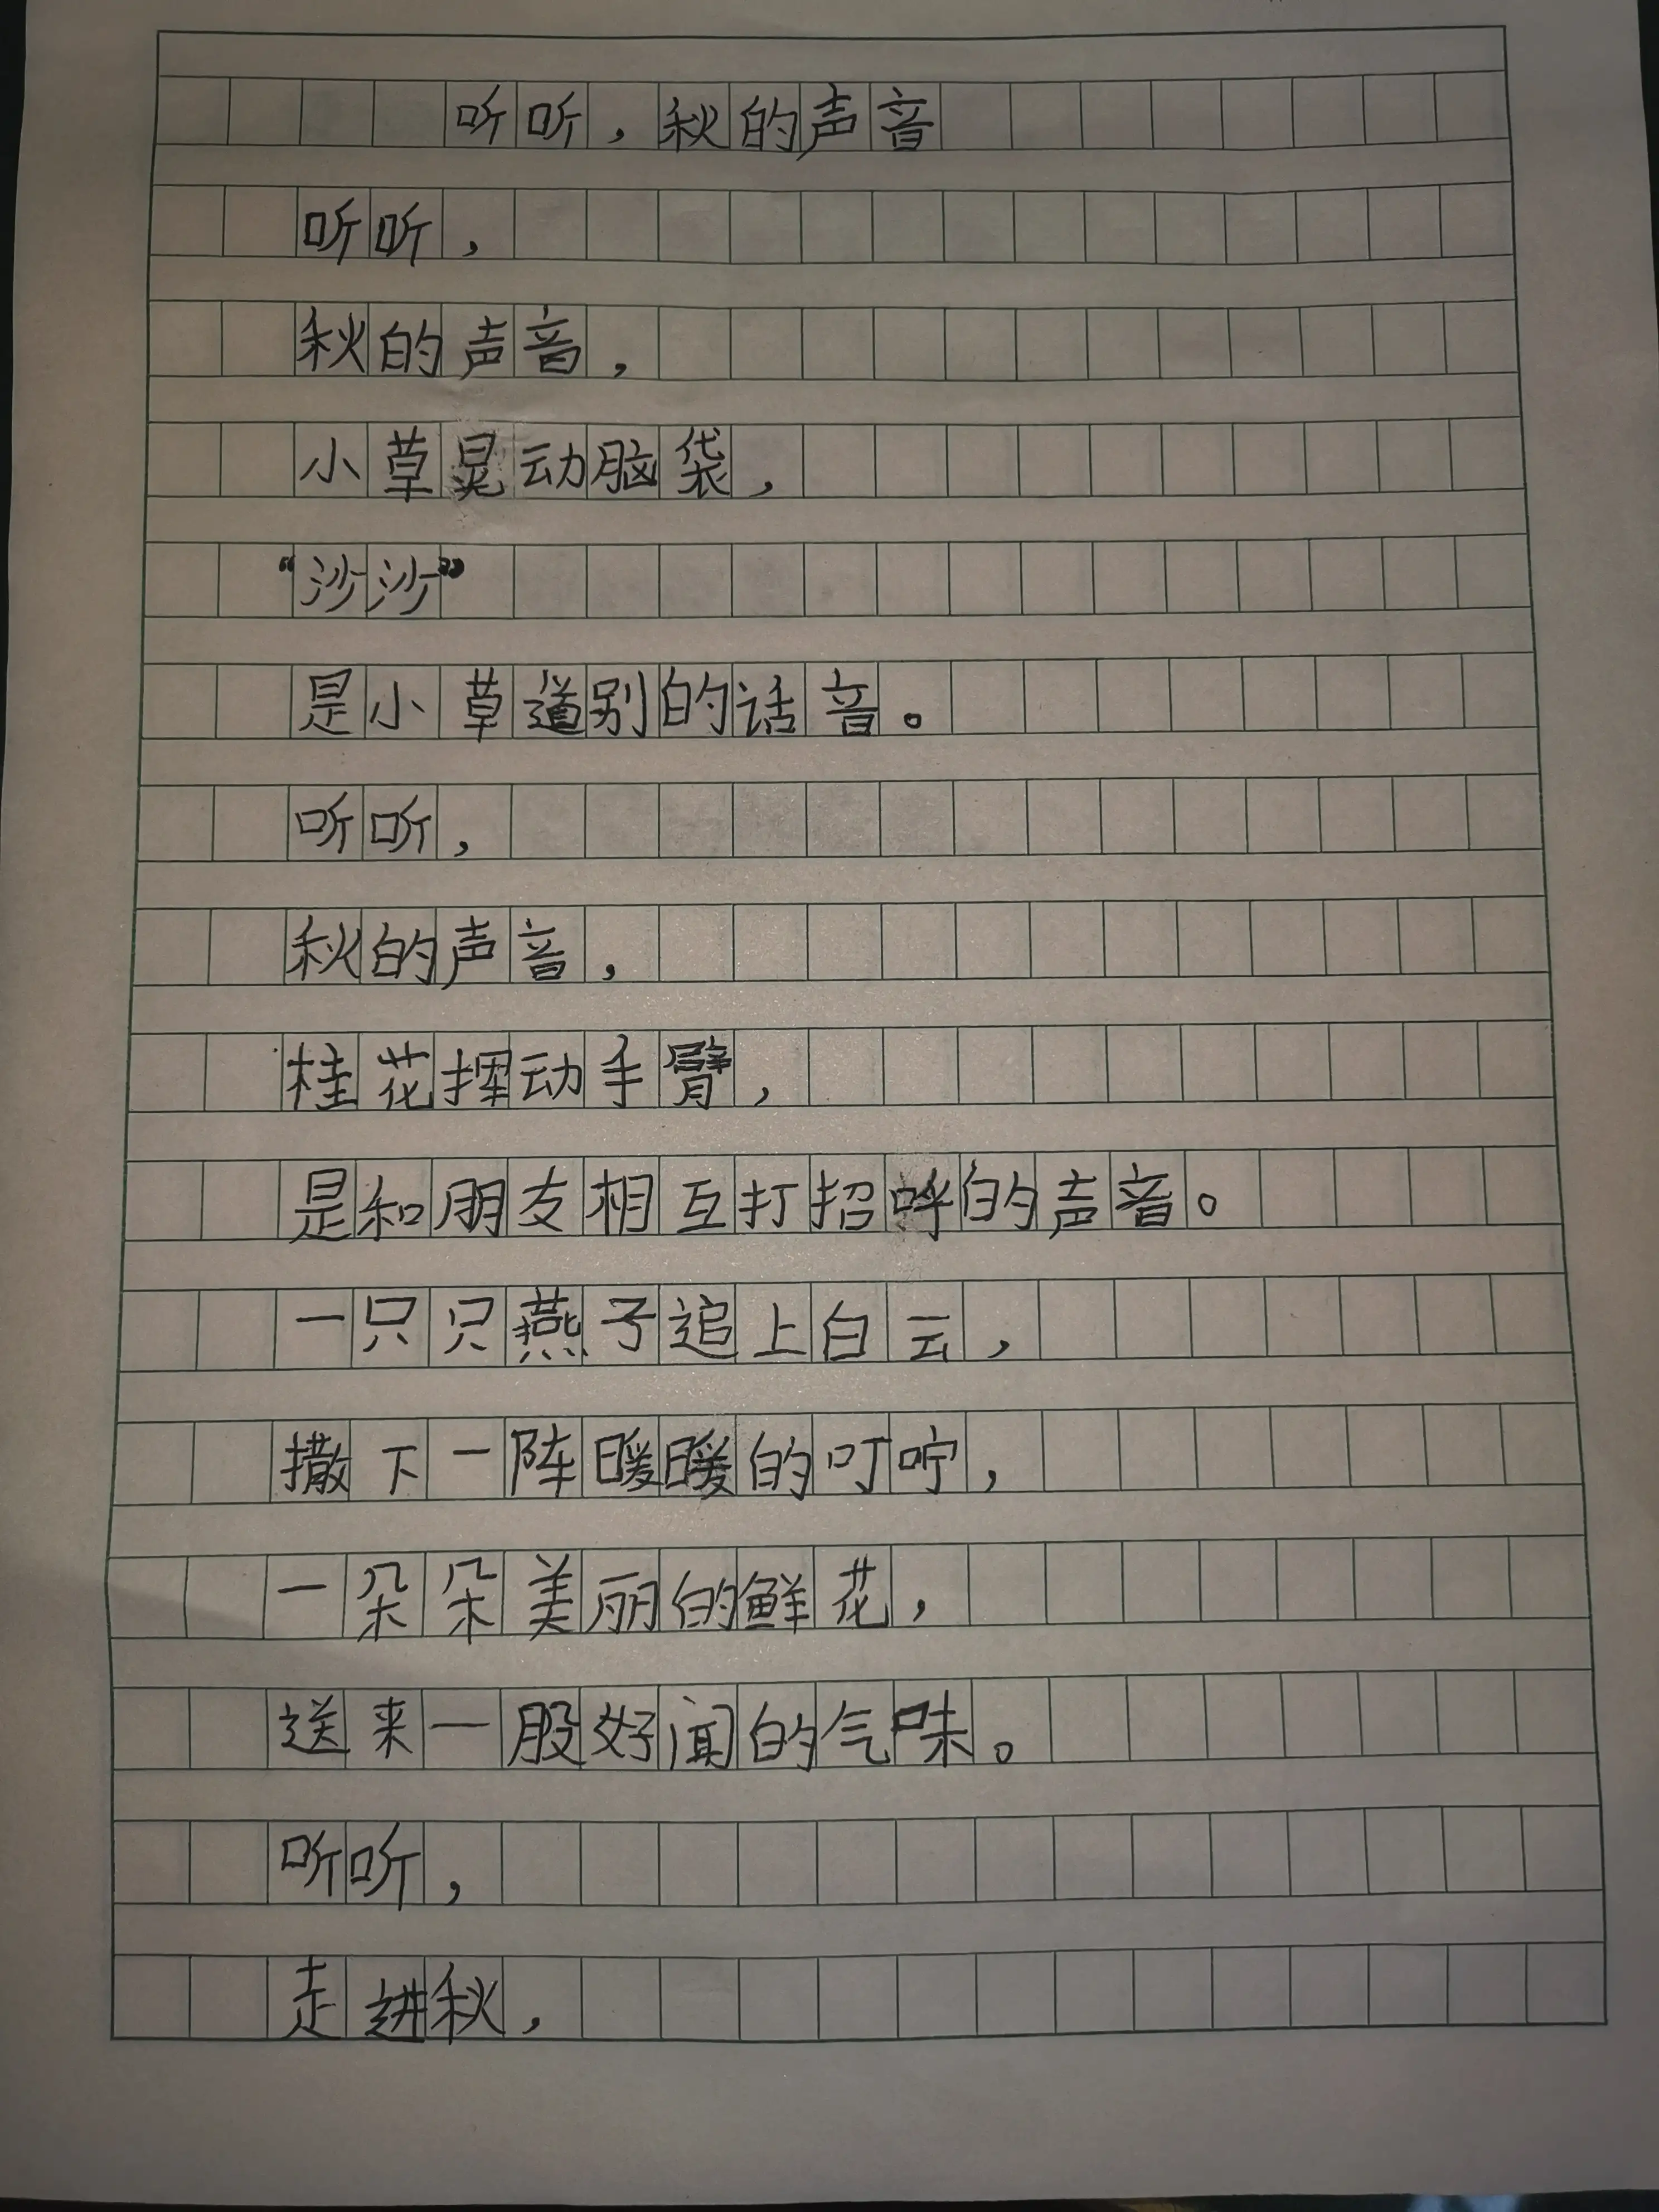 听听，秋的声音
听听，
秋的声音，
小草晃动脑袋，
“沙沙”
是小草道别的话音。
听听，
秋的声音，
桂花挥动手臂，
是和朋友相互打招呼的声音。
一只只燕子追上白云，
撒下一阵暖暖的叮咛，
一朵朵美丽的鲜花，
送来一股好闻的气味。
听听，
走进秋，